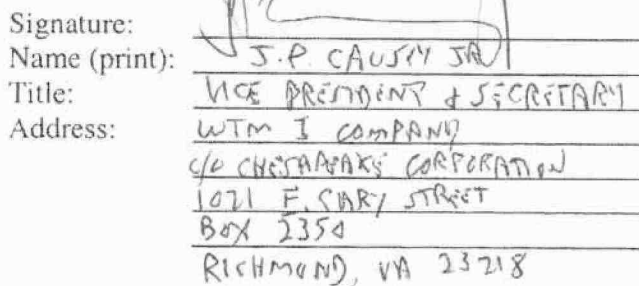 Signature:
Name (print): J.P. CAUSEY JR
Title: VICE PRESIDENT & SECRETARY
Address: WTM I COMPANY
c/o CHESAPEAKE CORPORATION
1021 E. CARY STREET
BOX 2350
RICHMOND, VA 23218